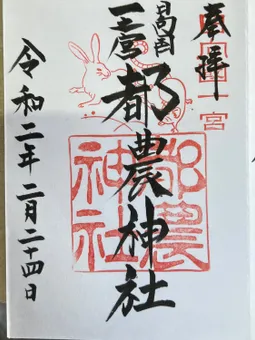 奉拝
日向国
一之宮
都農神社
令和二年二月二十四日
一宮
都農
神社